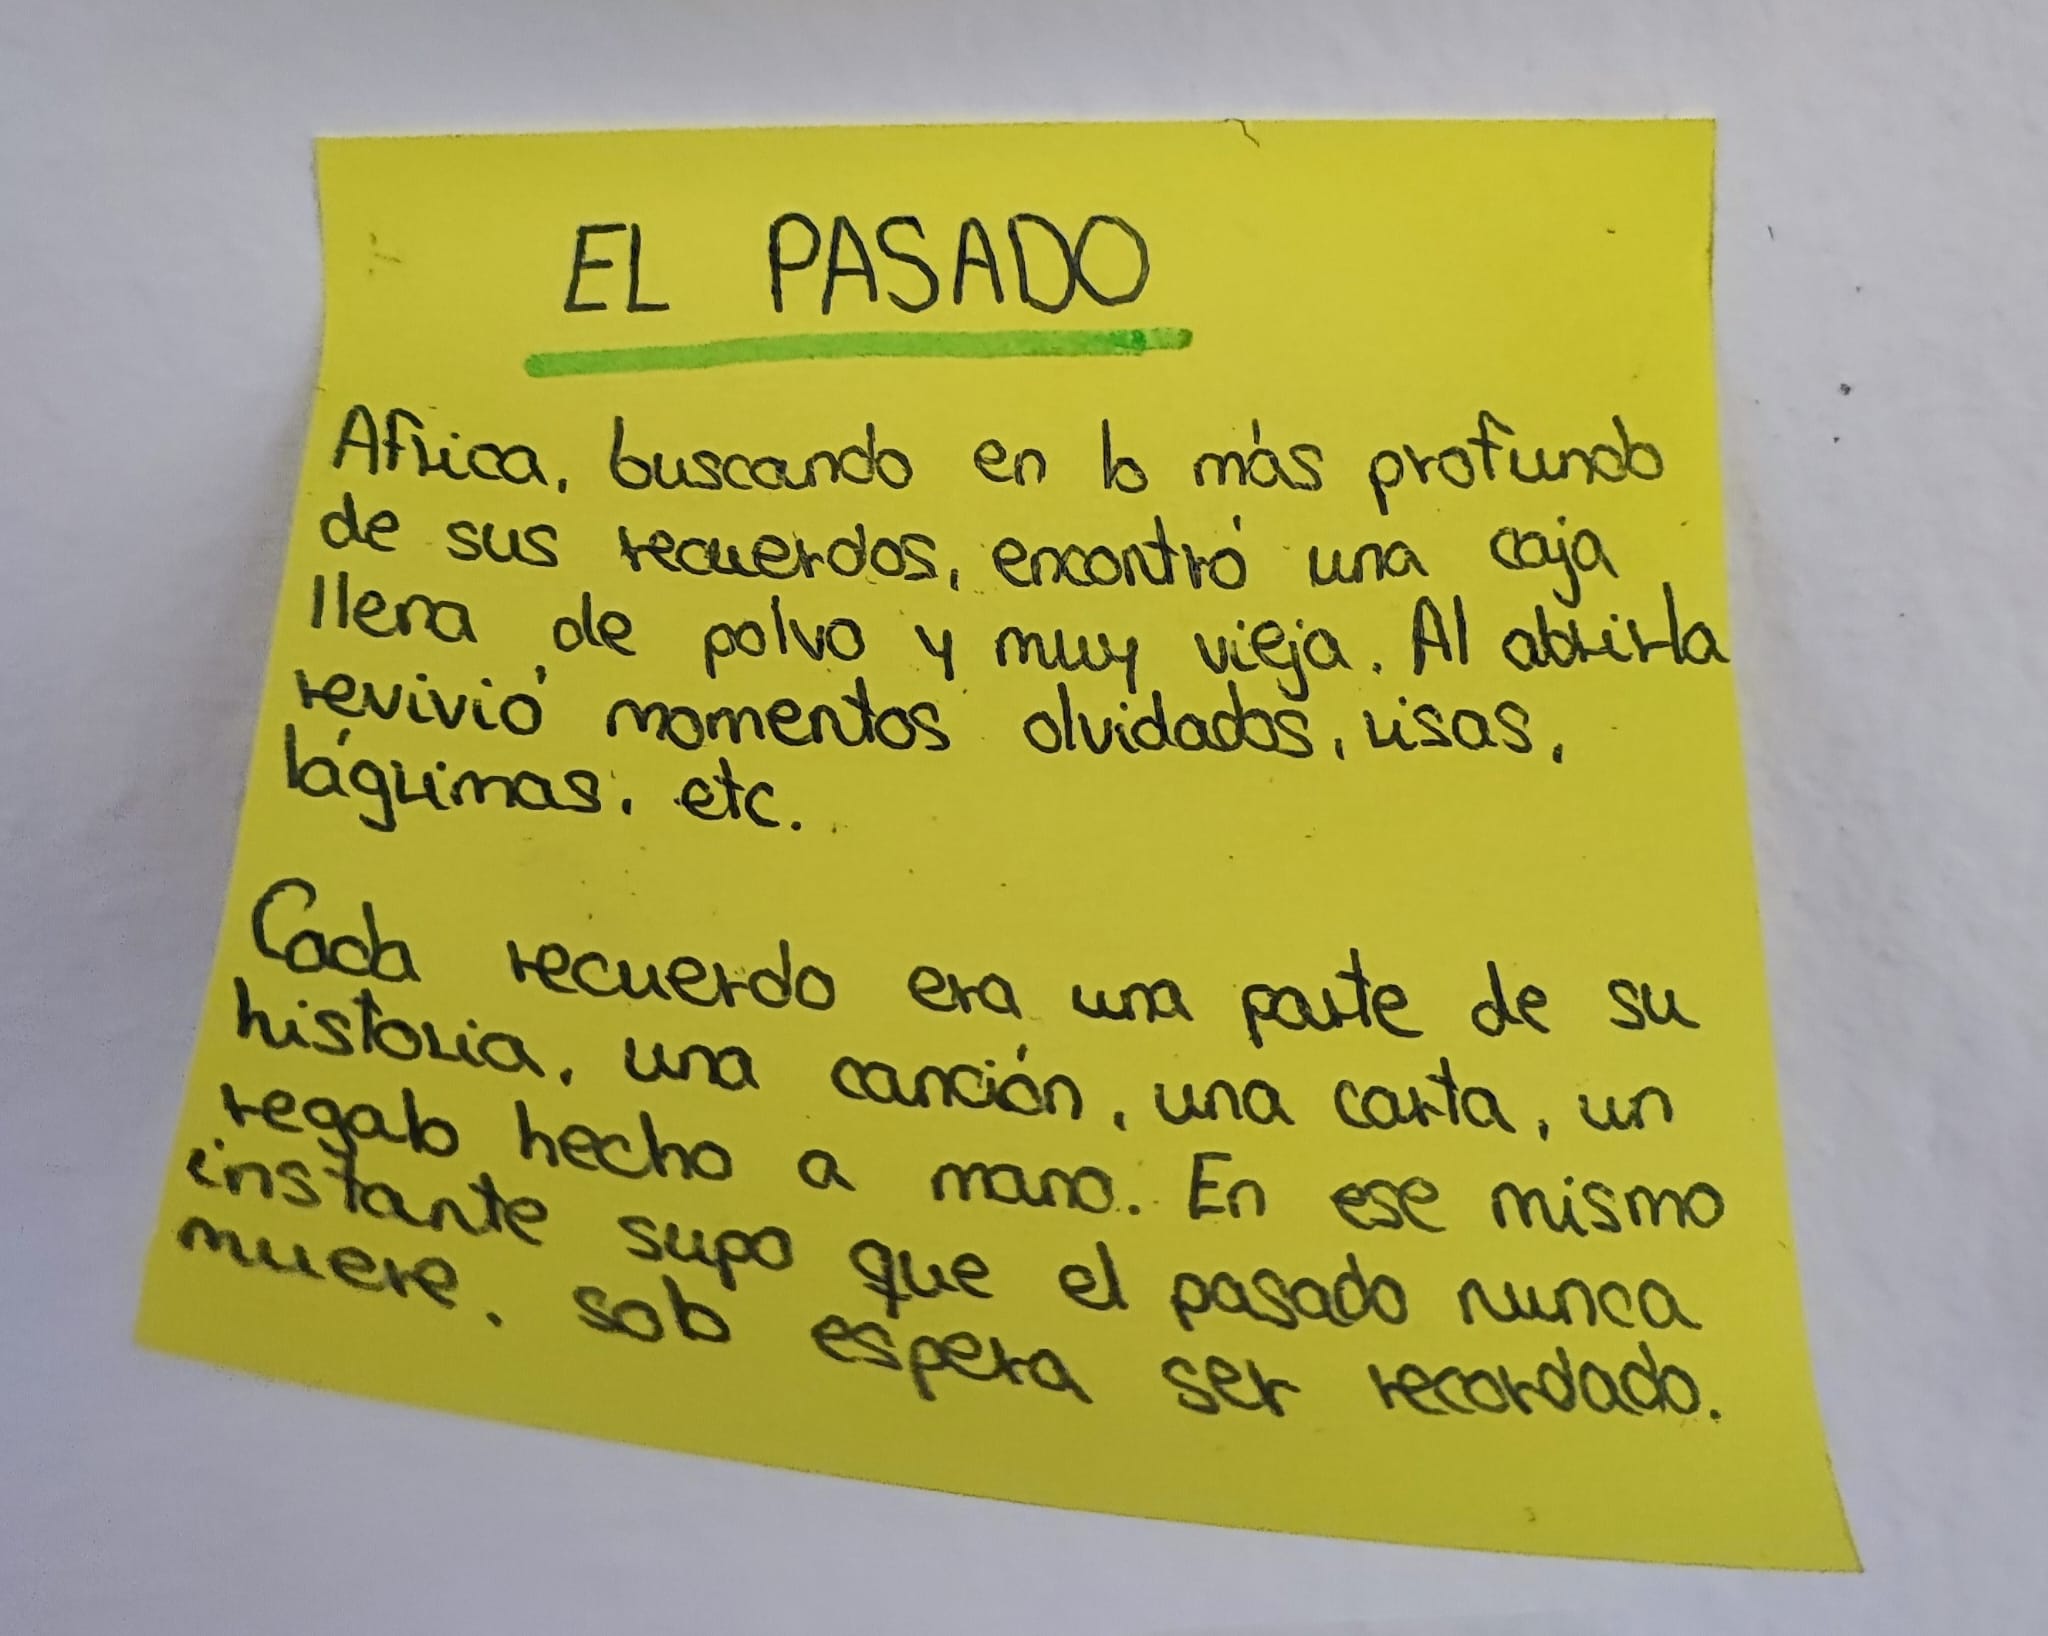 EL PASADO
Africa, buscando en lo más profundo
de sus recuerdos, encontró una caja
llena de polvo y muy vieja. Al abrirla
revivió momentos olvidados, risas,
lágrimas, etc.
Cada recuerdo era una parte de su
historia, una canción, una carta, un
regalo hecho a mano. En ese mismo
instante supo que el pasado nunca
muere, solo espera ser recordado.